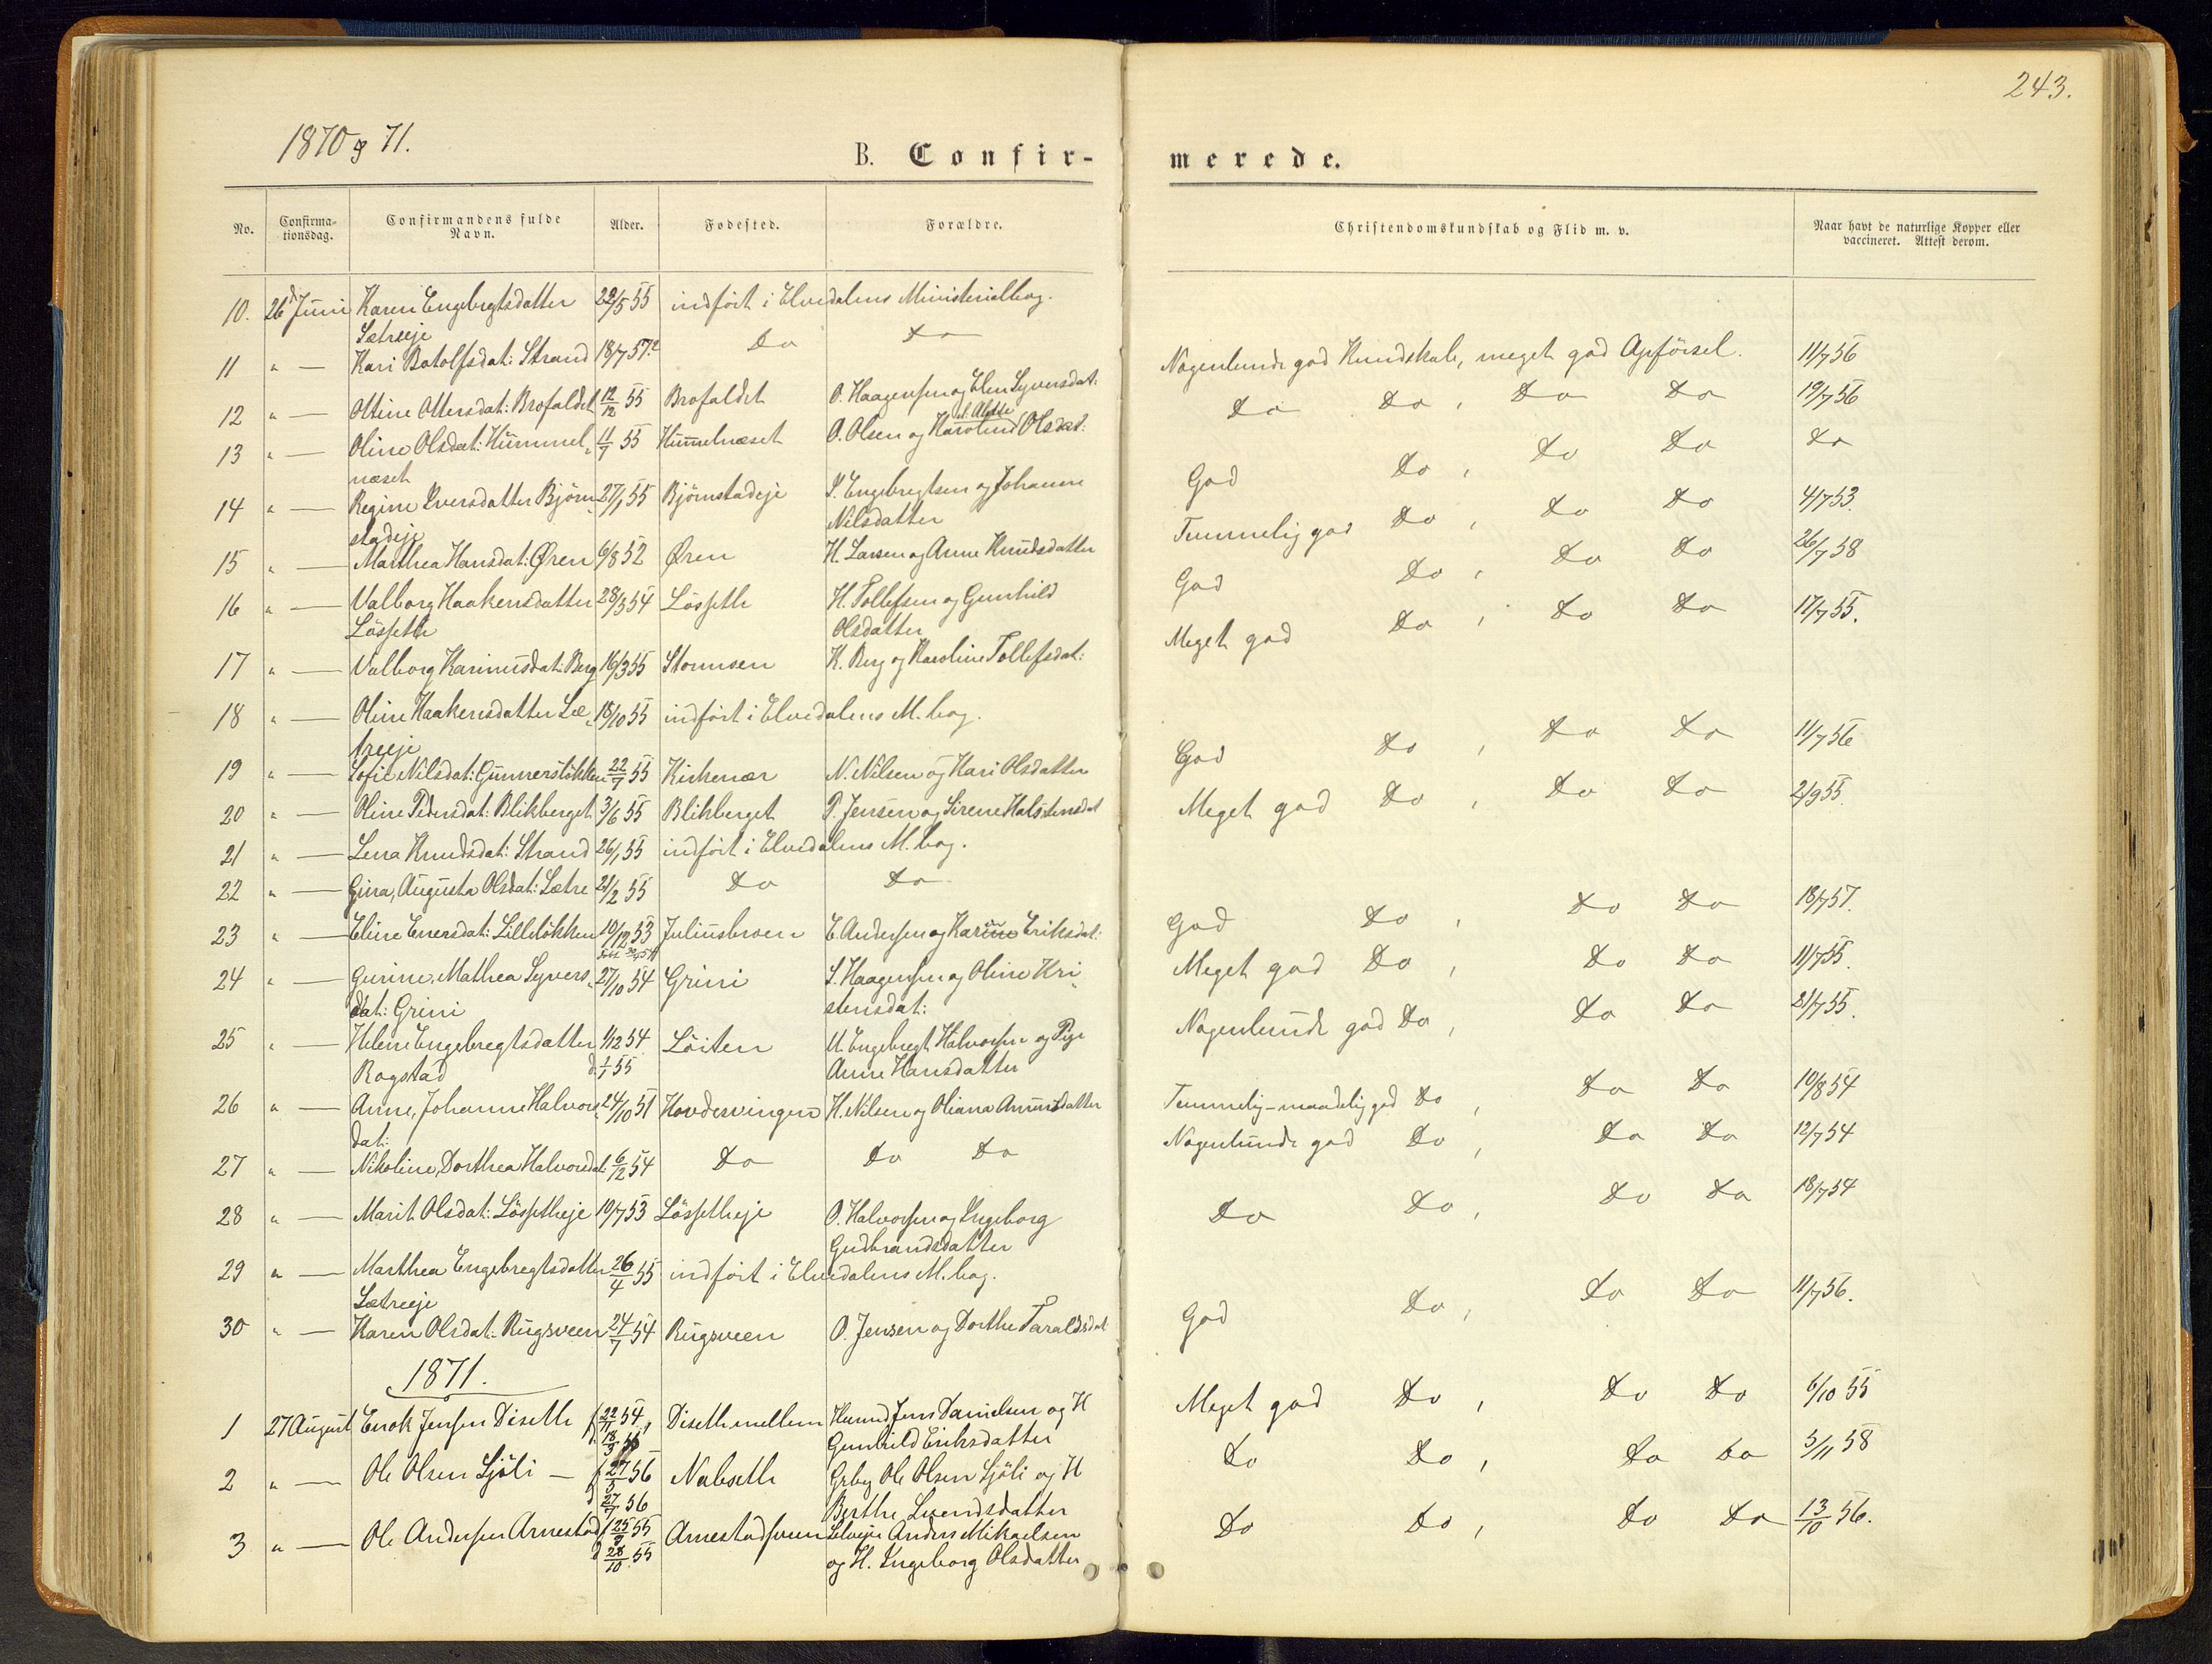 243.
1870 g 71.
B. Confir-
merede.
No.
Confirma-
tionsdag.
Confirmandens fulde
Navn.
Alder.
Fødested.
Forældre.
Christendomskundskab og Flid m. v.
Naar havt de naturlige Kopper eller
vaccineret. Attest derom.
10. 26d Juni Karen Engebregtsdatter 22/5 55 indført i Elvedalens Ministerialbog.
Sætreeje
11 " — Kari Botolfsdat: Strand 18/7 57. Do Do
12 " — Ottine Ottersdat: Brofaldet 12/12 55 Brofaldet O. Haagensen og Elen Syversdat:
13 " — Oline Olsdat: Hummel- 11/7 55 Hummelnæset O. Olsen og Karoline Olsdat:
næset
14 " — Regine Iversdatter Bjørn- 27/1 55 Bjørnstadeje I. Engebregtsen og Johanne
stadeje Nilsdatter
15 " — Marthea Hansdat: Øren 6/8 52 Øren H. Larsen og Anne Knudsdatter
16 " — Valborg Haakensdatter 28/3 54 Løsseth H. Tollefsen og Gunhild
Løsseth Olsdatter
17 " — Valborg Karinusdat: Berg 16/3 55 Stomnsen K. Berg og Karoline Tollefsdat:
18 " — Oline Haakensdatter Sæ- 18/10 55 indført i Elvedalens M. bog.
treeje
19 " — Sofie Nilsdat: Gunnersløkken 22/7 55 Kirkenær N. Nilsen og Kari Olsdatter
20 " — Oline Pedersdat: Blikberget 3/6 55 Blikberget P. Jensen og Sirene Halstensdat
21 " — Lena Knudsdat: Strand 26/1 55 indført i Elvedalens M. bog.
22 " — Gina, Augusta Olsdat: Sætre 21/2 55 Do Do
23 " — Eline Enersdat: Lilleløkken 10/12 53 Juliusbroen E. Andersen og Karine Eriksdat:
24 " — Gurine, Mathea Syvers- 27/10 54 Grini S. Haagensen og Oline Kri-
dat: Grini stensdat:
25 " — Helene Engebregtsdatter 1/12 54 Løiten U. Engebregt Halvorsen og Pige
Rogstad d. 1/1 55 Anne Hansdatter
26 " — Anne, Johanne Halvors- 24/10 51 Hovdesvingen H. Nilsen og Oliana Amundsdatter
dat:
27 " — Nikoline, Dorthea Halvorsdat: 6/12 54 Do Do Do
28 " — Marit Olsdat: Løssetheje 10/7 53 Løssetheje O. Halvorsen og Ingeborg
Gudbrandsdatter
29 " — Marthea Engebregtsdatter 26/4 55 indført i Elvedalens M. bog.
Sætreeje
30 " — Karen Olsdat: Rugsveen 24/7 54 Rugsveen O. Jensen og Dorthe Taraldsdat
1871.
1 27 August Enok Jensen Diseth f. 22/11 54 Diseth mellem Huusmd Jens Danielsen og H
d. 18/3 55 Gunhild Eriksdatter
2 " — Ole Olsen Sjøli — f. 27/5 56 Nabseth Grbr Ole Olsen Sjøli og H
d. 27/7 56 Berthe Svendsdatter
3 " — Ole Andersen Arnestad f. 25/9 55 Arnestadsveen Selveier Anders Mikaelsen
d. 28/10 55 og H. Ingeborg Olsdatter
Nogenlunde god Kundskab, meget god Opførsel. 11/7 56
Do Do, Do Do 19/7 56
God Do, Do Do Do
Temmelig god Do, Do Do 4/7 53.
God Do, Do Do 26/7 58
Meget god Do, Do Do 17/7 55.
God Do, Do Do 11/7 56
Meget god Do, Do Do 2/9 55.
God Do, Do Do 18/7 57.
Meget god Do, Do Do 11/7 55.
Nogenlunde god Do, Do Do 21/7 55.
Temmelig-maadelig god Do, Do Do 10/8 54
Nogenlunde god Do, Do Do 12/7 54
Do Do, Do Do 18/7 54
God Do, Do Do 11/7 56.
Meget god Do, Do Do 6/10 55
Do Do, Do Do 5/11 58
Do Do, Do Do 13/10 56.